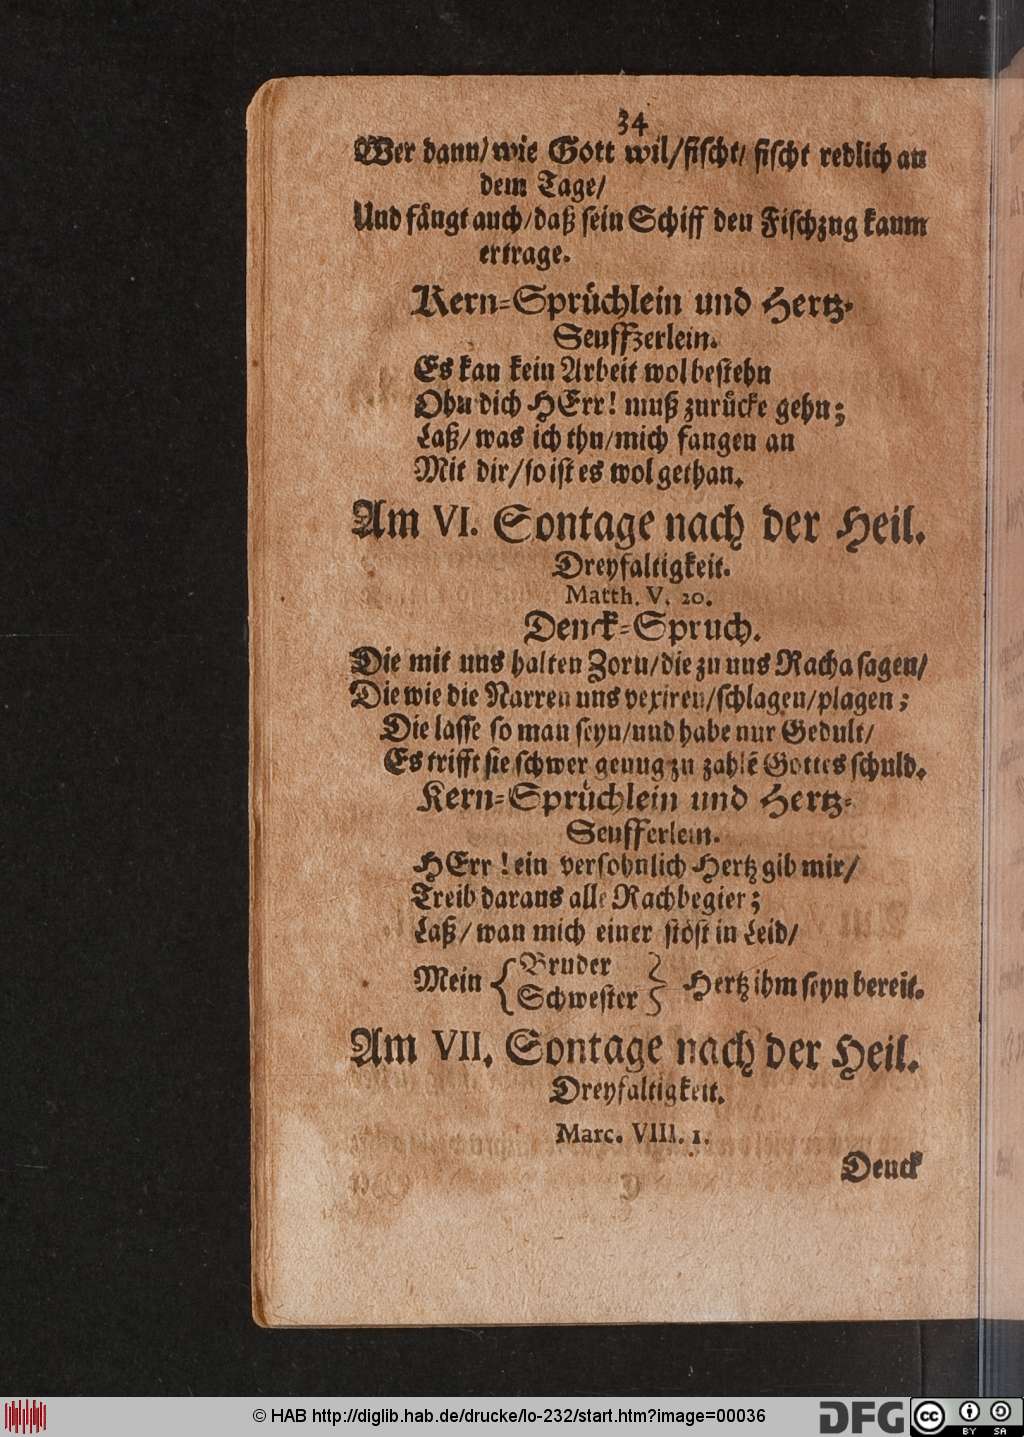 34
Wer dann/ wie Gott wil/ fischt/ fischt redlich an
dem Tage/
Und fängt auch/ daß sein Schiff den Fischzug kaum
ertrage.
Kern-Sprüchlein und Hertz-
Seuffzerlein.
Es kan kein Arbeit wol bestehn
Ohn dich HErr! muß zurücke gehn;
Laß/ was ich thu/ mich fangen an
Mit dir/ so ist es wol gethan.
Am VI. Sontage nach der Heil.
Dreyfaltigkeit.
Matth. V. 20.
Denck-Spruch.
Die mit uns halten Zorn/ die zu uns Racha sagen/
Die wie die Narren uns vexiren/ schlagen/ plagen;
Die lasse so man seyn/ und habe nur Gedult/
Es trifft sie schwer genug zu zahlē Gottes schuld.
Kern-Sprüchlein und Hertz-
Seufferlein.
HErr! ein versohnlich Hertz gib mir/
Treib daraus alle Rachbegier;
Laß/ wan mich einer stöst in Leid/
Mein { Bruder
Schwester } Hertz ihm seyn bereit.
Am VII. Sontage nach der Heil.
Dreyfaltigkeit.
Marc. VIII. 1.
Denck
© HAB http://diglib.hab.de/drucke/lo-232/start.htm?image=00036
DFG
cc BY SA